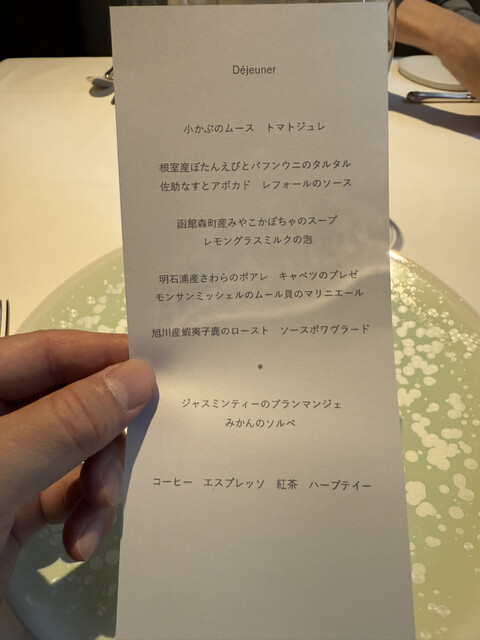 Déjeuner
小かぶのムース　トマトジュレ
根室産ぼたんえびとバフンウニのタルタル
佐助なすとアボカド　レフォールのソース
函館森町産みやこかぼちゃのスープ
レモングラスミルクの泡
明石浦産さわらのポアレ　キャベツのブレゼ
モンサンミッシェルのムール貝のマリニエール
旭川産蝦夷子鹿のロースト　ソースポワヴラード
*
ジャスミンティーのブランマンジェ
みかんのソルベ
コーヒー　エスプレッソ　紅茶　ハーブテイー